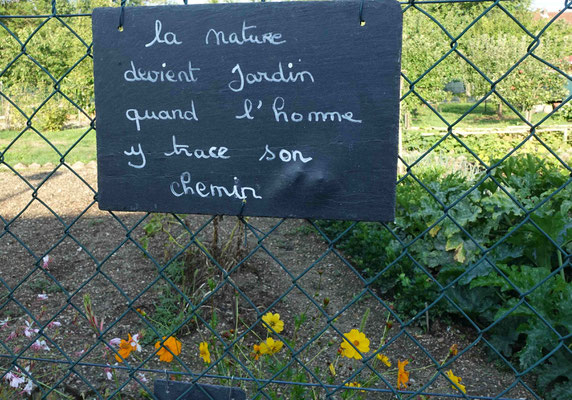 la nature
devient Jardin
quand l'homme
y trace son
chemin